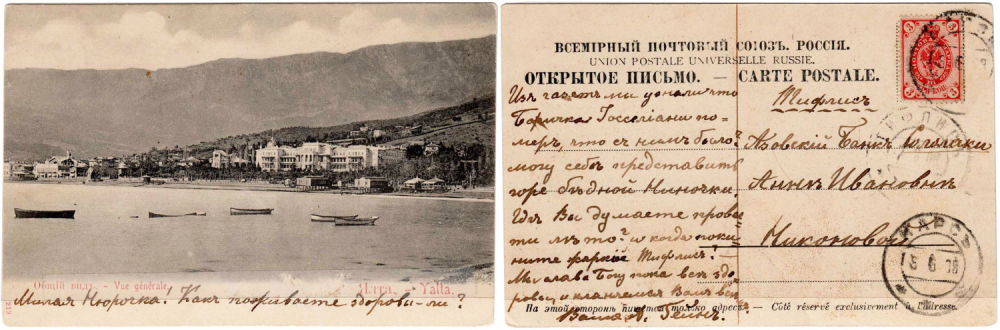 Общій видъ. – Vue générale.
Ялта. – Yalta.
Милая Нюрочка! Какъ поживаете здоровы-ли?
ВСЕМІРНЫЙ ПОЧТОВЫЙ СОЮЗЪ. РОССІЯ.
UNION POSTALE UNIVERSELLE RUSSIE.
ОТКРЫТОЕ ПИСЬМО. — CARTE POSTALE.
Изъ газетъ мы узнали что
Боричка Госселіани по-
меръ, что съ нимъ было?
могу себѣ представить
горе бѣдной Ниночки
Гдѣ Вы думаете прове-
ти лѣто? и когда поки-
ните жаркой Тифлисъ?
Мы слава Богу пока всѣ здо-
ровы и кланяемся Вамъ всѣ
Ваша
Тифлисъ
Азовскій Банкъ
Аннѣ Ивановнѣ
Никоновой
КАРСЪ
На этой сторонѣ пишется только адресъ. — Côté réservé exclusivement à l'adresse.